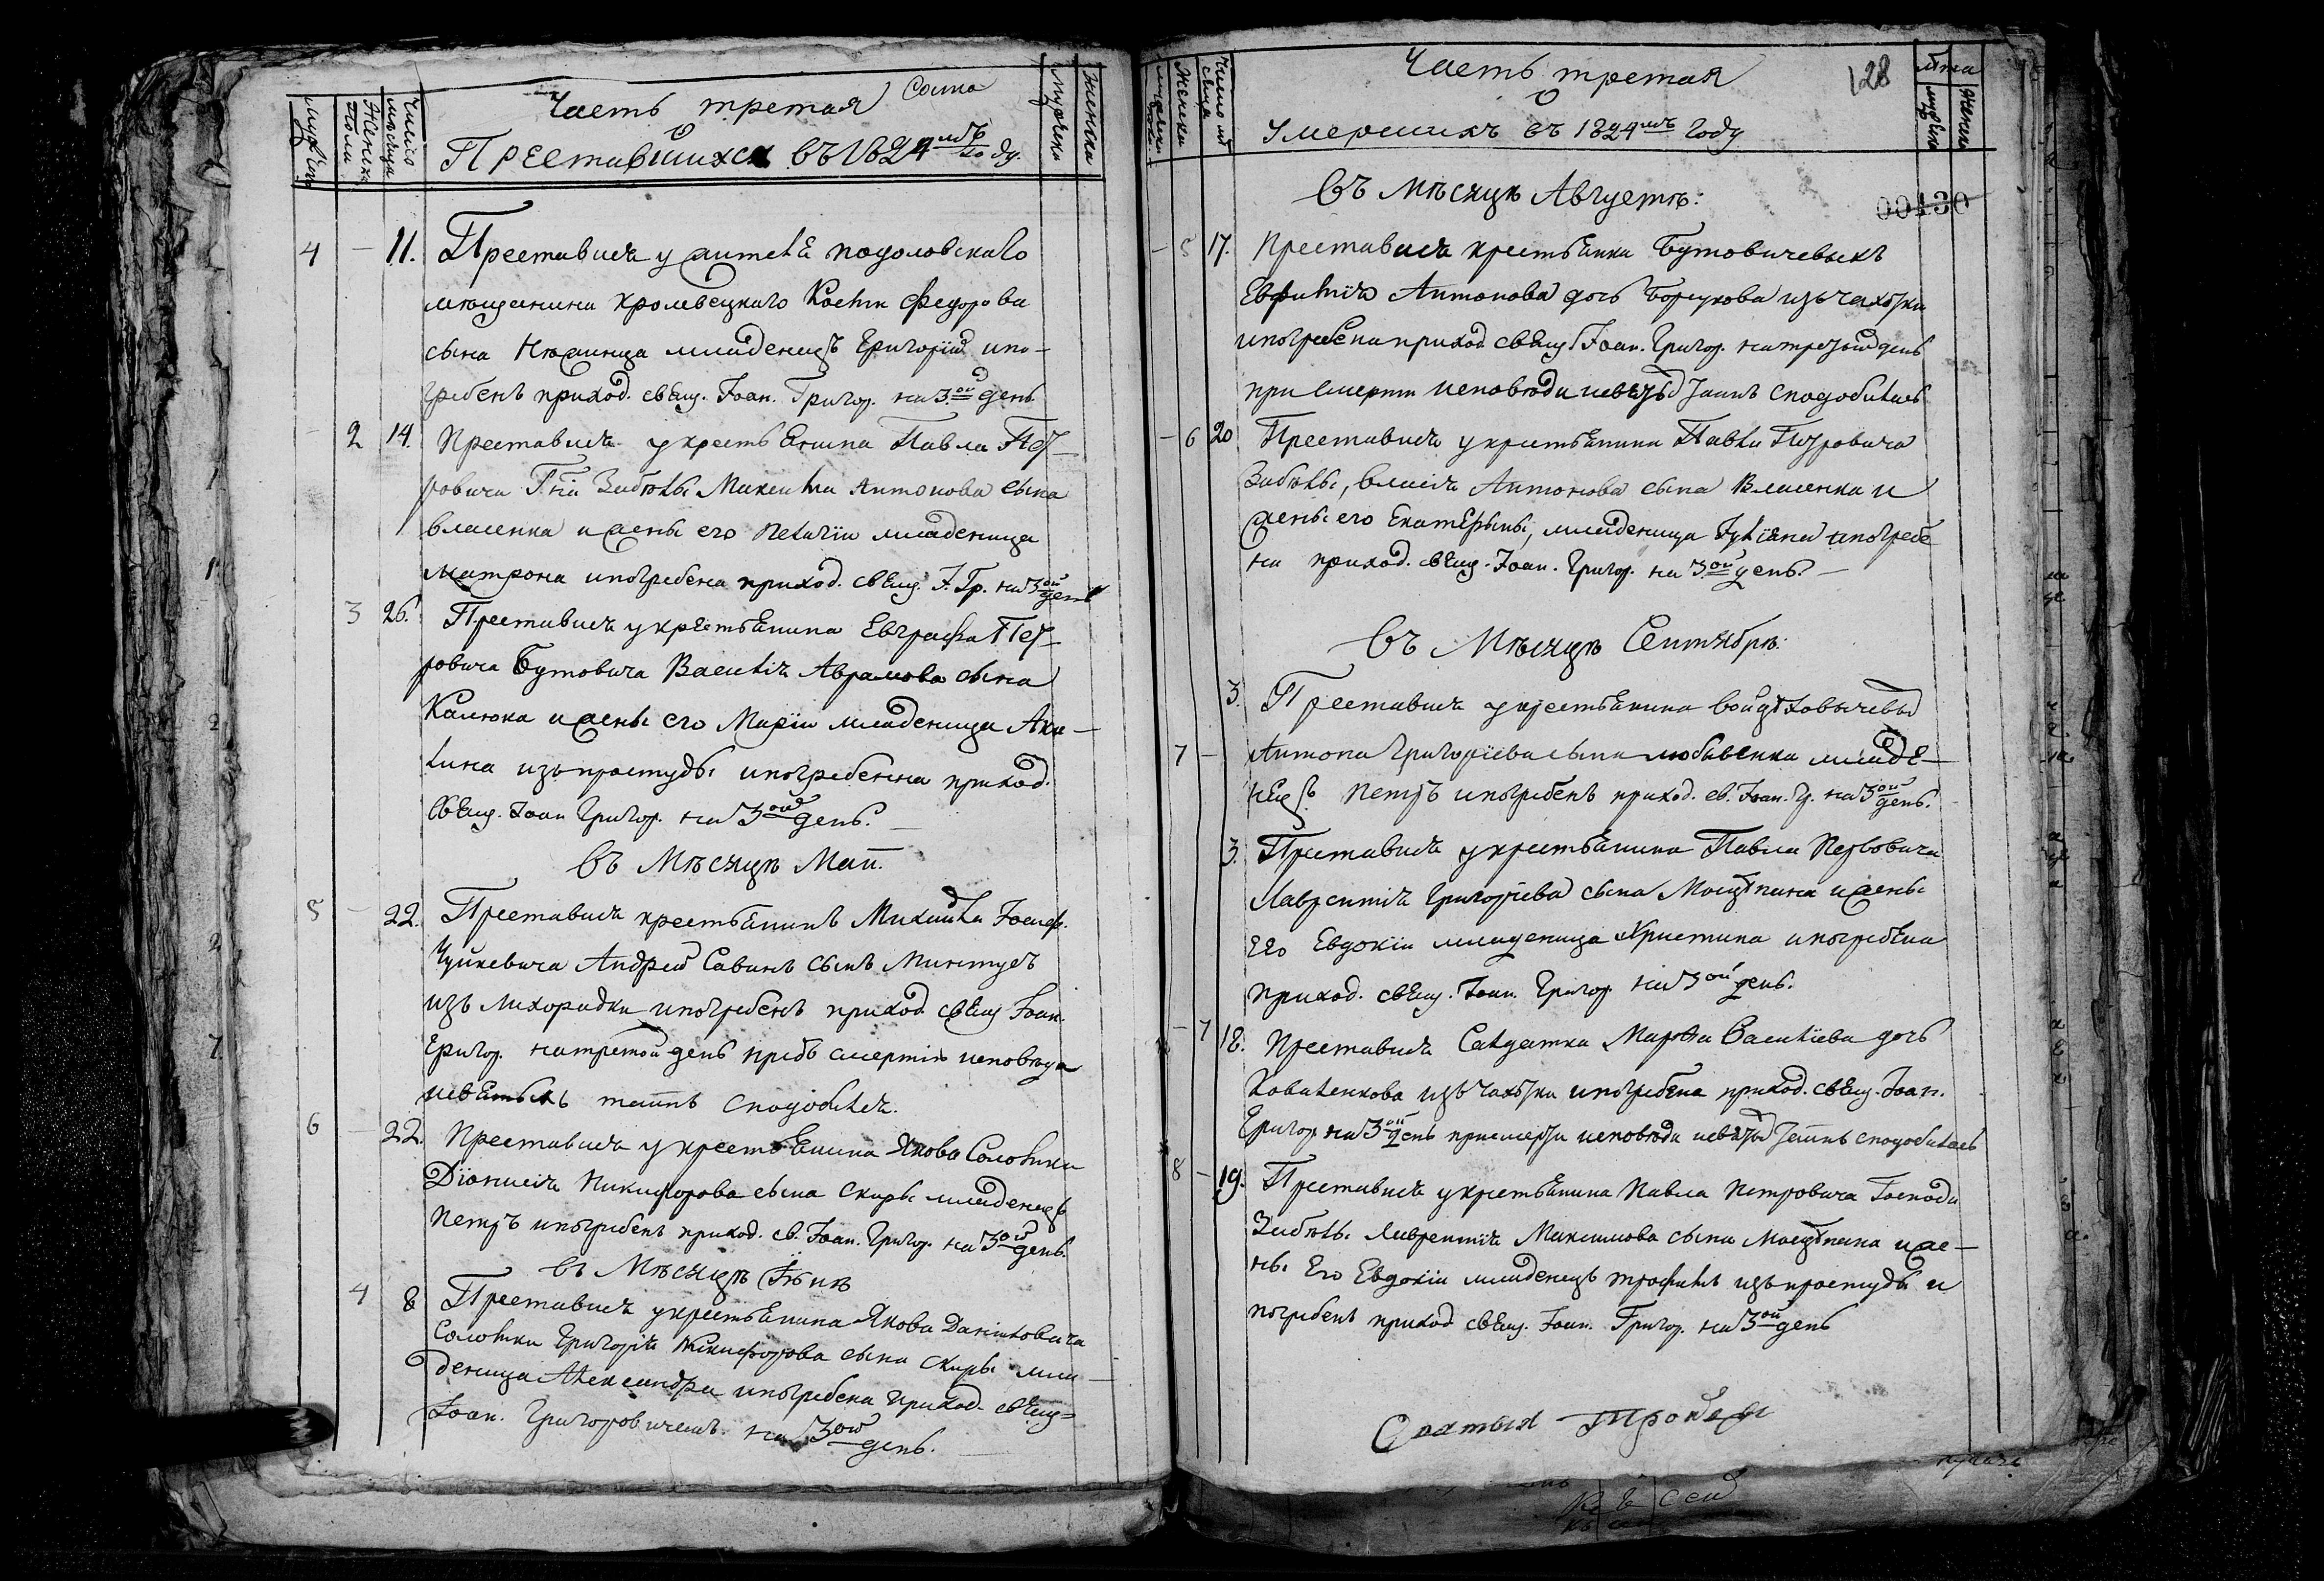 Часть третая
о
Преставшихся въ 1824мъ году.
Число месяца
4 — 11. Преставися у жителя подоловскаго
мещанина кролевецкаго Космы Федорова
сына младенецъ Григорій и по-
гребенъ приход. свящ. Іоан. Григор. на 3ой день
2 14. Преставися у крестьянина Павла Пет-
ровича Гна Забѣлы Максима Антонова сына
власенка и жены его Пелагіи младеница
матрона и погребена приход. свящ. І. Гр. на 3ой день
3 26. Преставися у крестьянина Евграфа Пет-
ровича Бутовича Василія Аврамова сына
Калюка и жены его Маріи младеница Аку-
лина изъ простуды и погребенна приход.
свящ. Іоан Григор. на 3ой день.
въ Мѣсяцѣ Маіи.
5 — 22. Преставися крестьянинъ Михаила Іосиф.
Чуйкевича Андрей Савинъ сынъ
изъ лихорадки и погребенъ приход свящ Іоан.
Григор. на третой день предъ смертію исповѣди
и святыхъ таинъ сподобился.
6 — 22. Преставися у крестьянина Якова Солонины
Діонисія Никифорова сына Скиры младенецъ
Петръ и погребенъ приход. св. Іоан. Григор. на 3ой день.
въ Мѣсяцѣ Іюнѣ
4 8 Преставися у крестьянина Якова Даниловича
Солонины Григорія Никифорова сына Скиры мла-
деница Александра и погребена приход. свящ=
Іоан. Григоровичемъ на 3ой день.
Часть третая 128
о
Умершихъ въ 1824мъ году
Лѣта
въ Мѣсяцѣ Августѣ:
00430
— 5 17. Преставися крестьянка Бутовичевыхъ
Евфимія Антонова дочь изъ чахотки
и погребена приход свящ Іоан. Григор. на третой день
при смерти исповѣди и святыхъ таинъ сподобилась
— 6 20 Преставися у крестьянина Павла Петровича
Забѣлы, власія Антонова сына Власенка и
жены его Екатерыны, младеница Іуліяна и погребе
на приход. свящ. Іоан. Григор. на 3ой день. —
въ Мѣсяцѣ Сентябрѣ.
3. Преставися у крестьянина
7 — Антона Григоріева сына младе-
нецъ Петръ и погребенъ приход. св. Іоан. Гр. на 3ой день.
3. Преставися у крестьянина Павла Петровича
Лаврентія Григоріева сына и жены
его Евдокіи младеница Христина и погребена
приход. свящ. Іоан. Григор. на 3ой день.
— 7 18. Преставися Салдатка Марфа Василіева дочь
Коваленкова изъ чахотки и погребена приход. свящ. Іоан.
Григор. на 3ой день при смерти исповѣди и святыхъ таинъ сподобилась
8 — 19. Преставися у крестьянина Павла Петровича Господи
Забѣлы Лаврентія Максимова сына и же-
ны Его Евдокіи младенецъ трофимъ изъ простуды и
погребенъ приход свящ. Іоан. Григор. на 3ой день